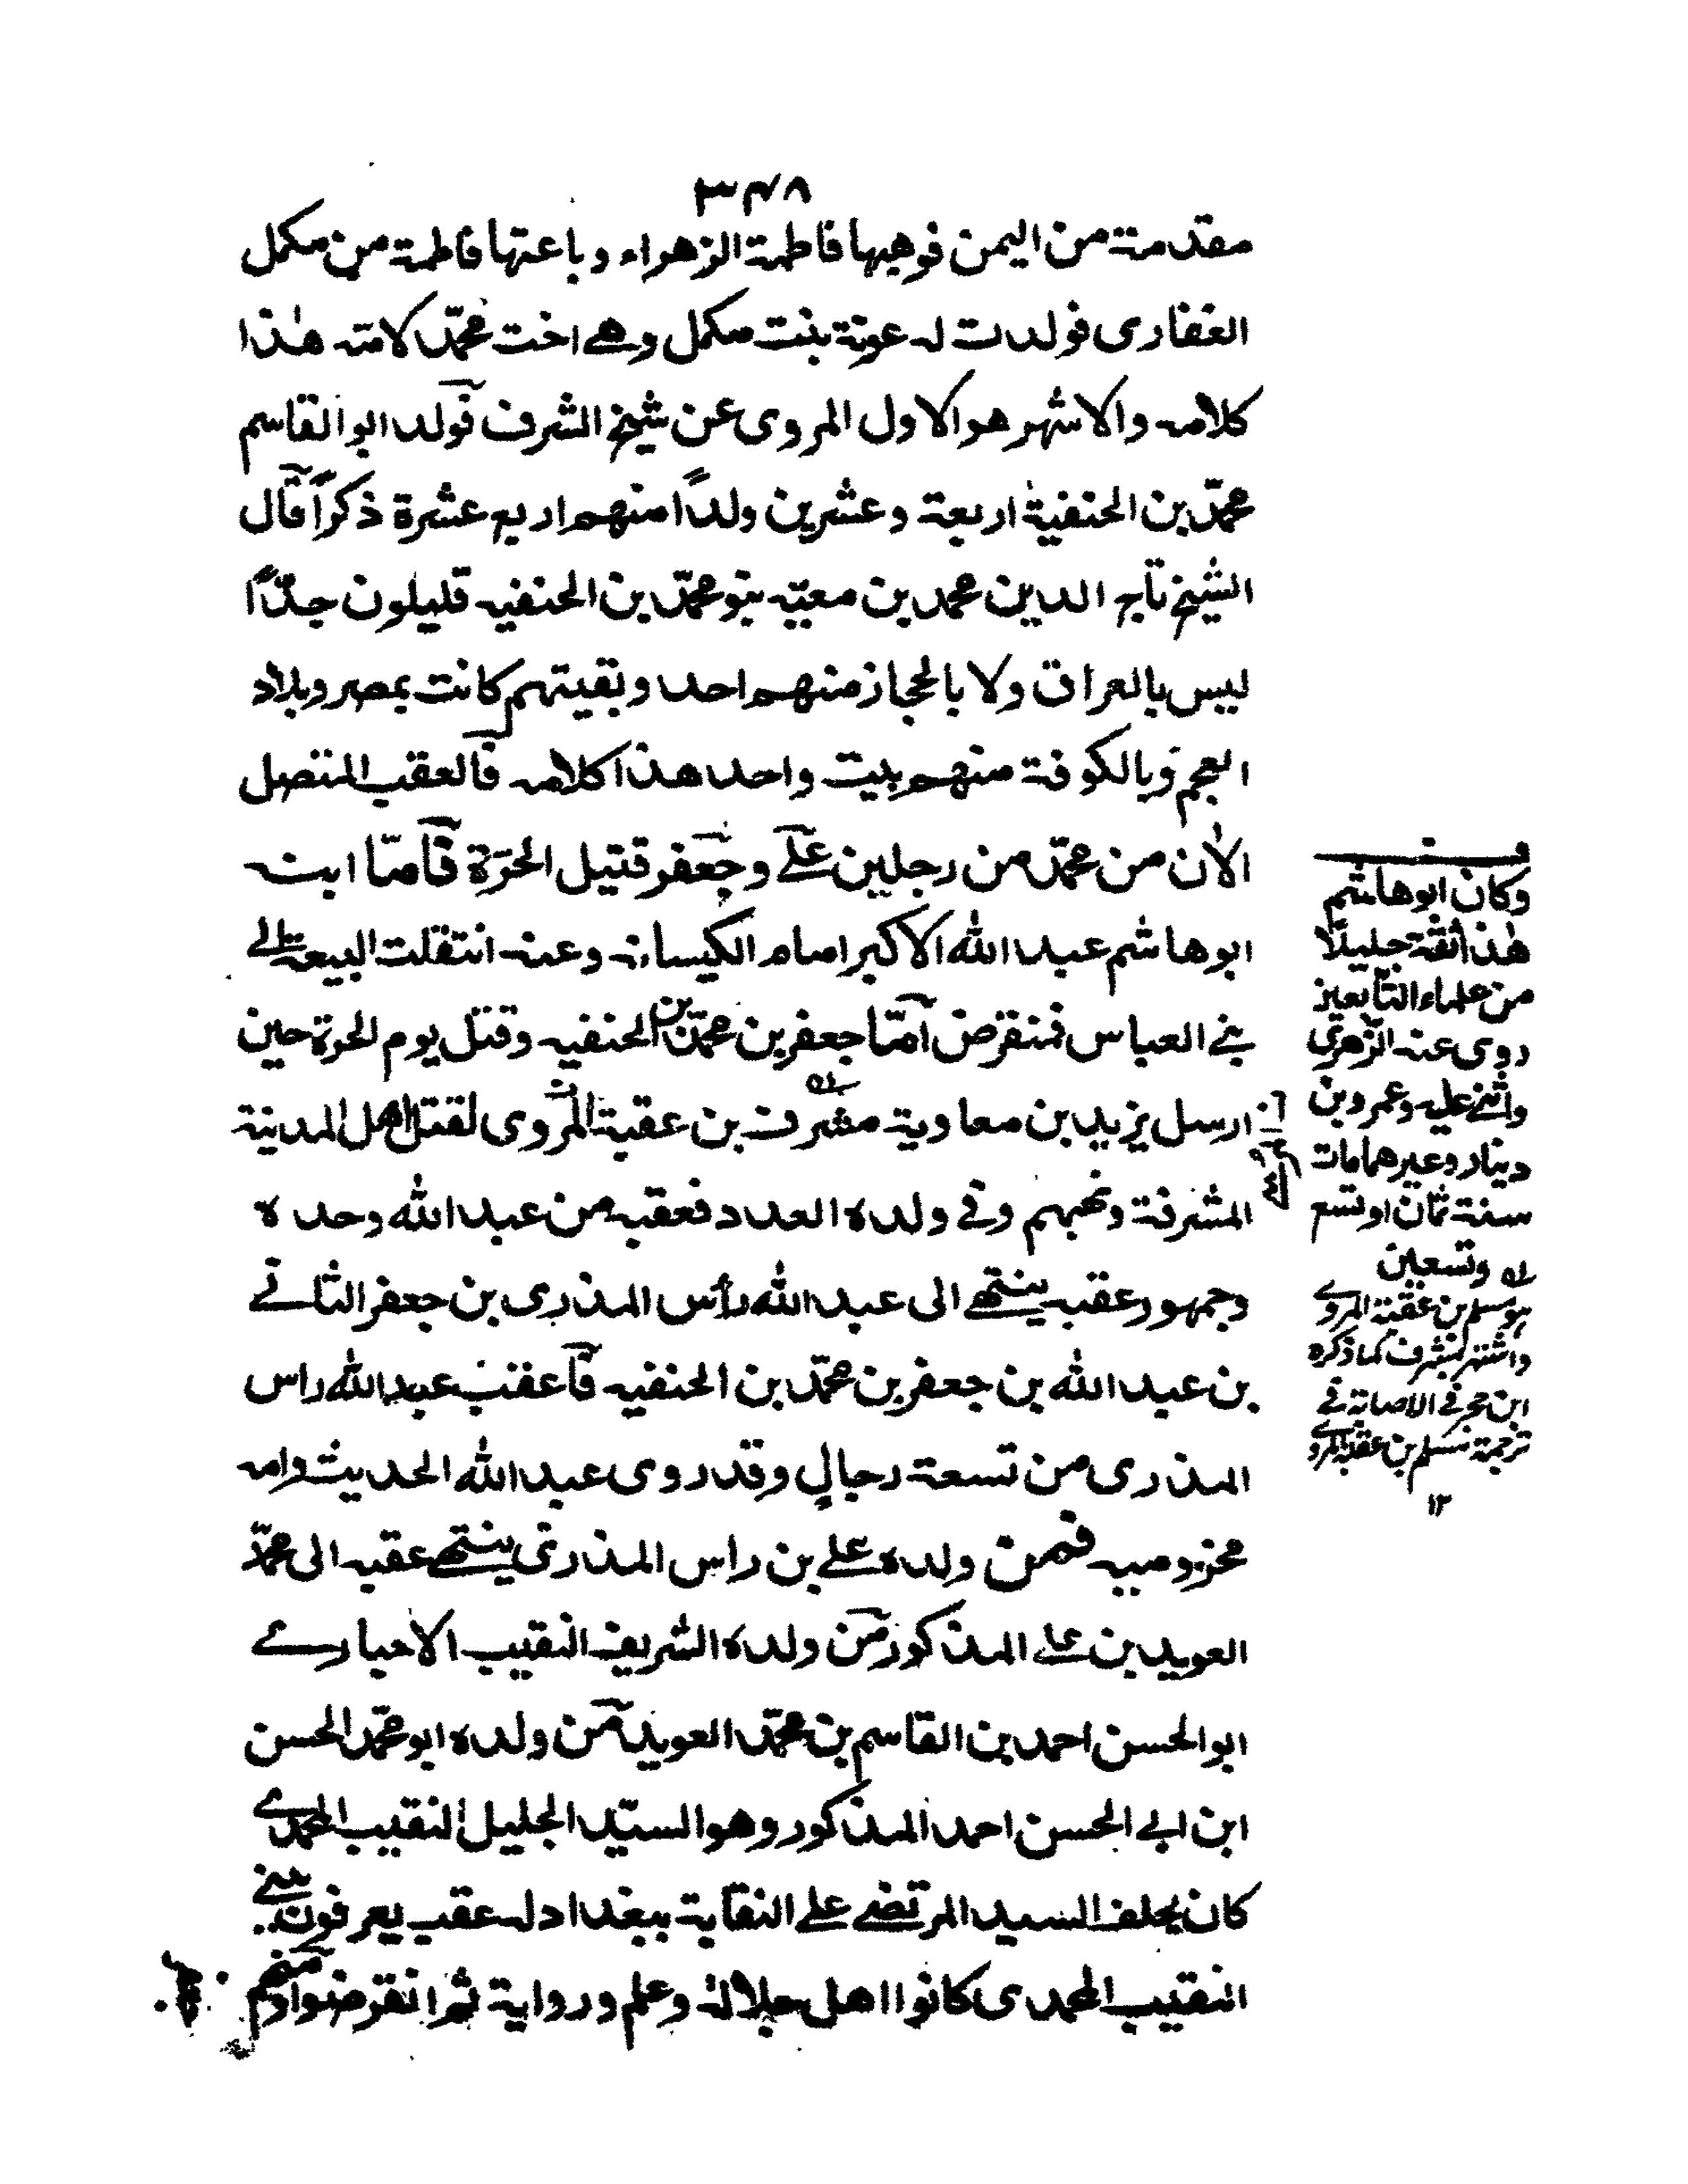 ۳۴۸
مقدمة من اليمن فوهبها فاطمة الزهراء وباعتها فاطمة من مكمل
الغفارى فولدت له عونة بنت مكمل وهى اخت محمّد لامّه هٰذا
كلامه والاشهر هو الاول المروى عن شيخ الشرف فولد ابو القاسم
محمّد بن الحنفية اربعة وعشرين ولدًا منهم اربع عشرة ذكرًا قال
الشيخ تاج الدين محمد بن معيّه بنو محمّد بن الحنفيه قليلون جدًّا
ليس بالعراق ولا بالحجاز منهم احد وبقيتهم كانت بمصر وبلاد
العجم وبالكوفة منهم بيت واحد هذا كلامه فالعقب المتصل
الاٰن من محمّد من رجلين على وجعفر قتيل الحرّة فامّا ابنه
ابو هاشم عبد الله الاكبر امام الكيسانه وعنه انتقلت البيعة الى
بنى العباس فمنقرض امّا جعفر بن محمّد بن الحنفيه وقتل يوم الحرة حين
ارسل يزيد بن معاوية مشرف بن عقبة المروى لقتل اهل المدينة
المشرفة ونهبهم وفى ولده العدد فعقبه من عبد الله وحده
وجمهور عقبه ينتهى الى عبد الله رأس المذرى بن جعفر الثانى
بن عبد الله بن جعفر بن محمّد بن الحنفيه فاعقب عبد الله راس
المذرى من تسعة رجالٍ وقد روى عبد الله الحديث وامه
مخزوميه فمن ولده على بن راس المذرى ينتهى عقبه الى محمّد
العويد بن على المذكور من ولده الشريف النقيب الاخبارى
ابو الحسن احمد بن القاسم بن محمّد العويد من ولده ابو محمّد الحسن
ابن ابى الحسن احمد المذكور وهو السيّد الجليل النقيب المحمدى
كان يخلف السيد المرتضى على النقابة ببغداد له عقب يعرفون ببنى
النقيب المحمدى كانوا اهل جلالة وعلم ورواية ثم انقرضوا ومنهم
وكان ابو هاشم
هٰذا ثقة جليلًا
من علماء التابعين
روى عنه الزهرى
واثنى عليه وعمرو بن
دينار وغيرهما مات
سنة ثمان او تسع
وتسعين
هو مسلم بن عقبة المروى
واشتهر بمشرف كما ذكره
ابن حجر فى الاصابة فى
ترجمة مسلم بن عقبة المروى
۱۲